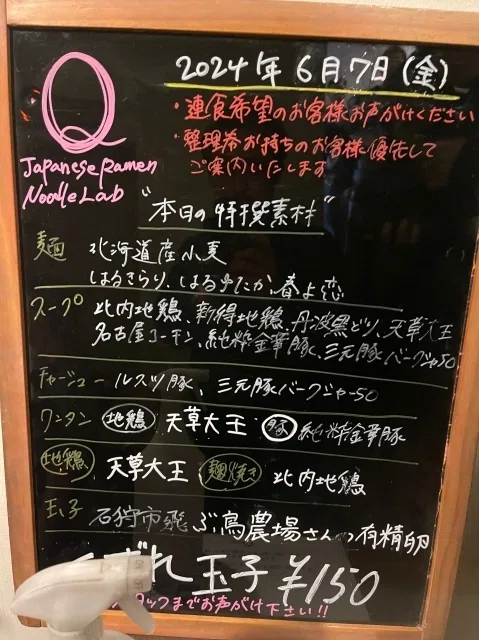 Q
Japanese Ramen
Noodle Lab
2024年6月7日(金)
・連食希望のお客様お声がけください
・整理券お持ちのお客様優先して
ご案内いたします
"本日の特撰素材"
麺 北海道産小麦
はるきらり、はるゆたか、春よ恋
スープ 比内地鶏、新得地鶏、丹波黒どり、天草大王
名古屋コーチン、純粋金華豚、三元豚バークシャー50
チャーシュー ルスツ豚、三元豚バークシャー50
ワンタン 地鶏 天草大王 豚 純粋金華豚
地鶏 天草大王 麹焼き 比内地鶏
玉子 石狩市飛ぶ鳥農場さんの有精卵
ずれ玉子 ¥150
タッフまでお声がけ下さい!!